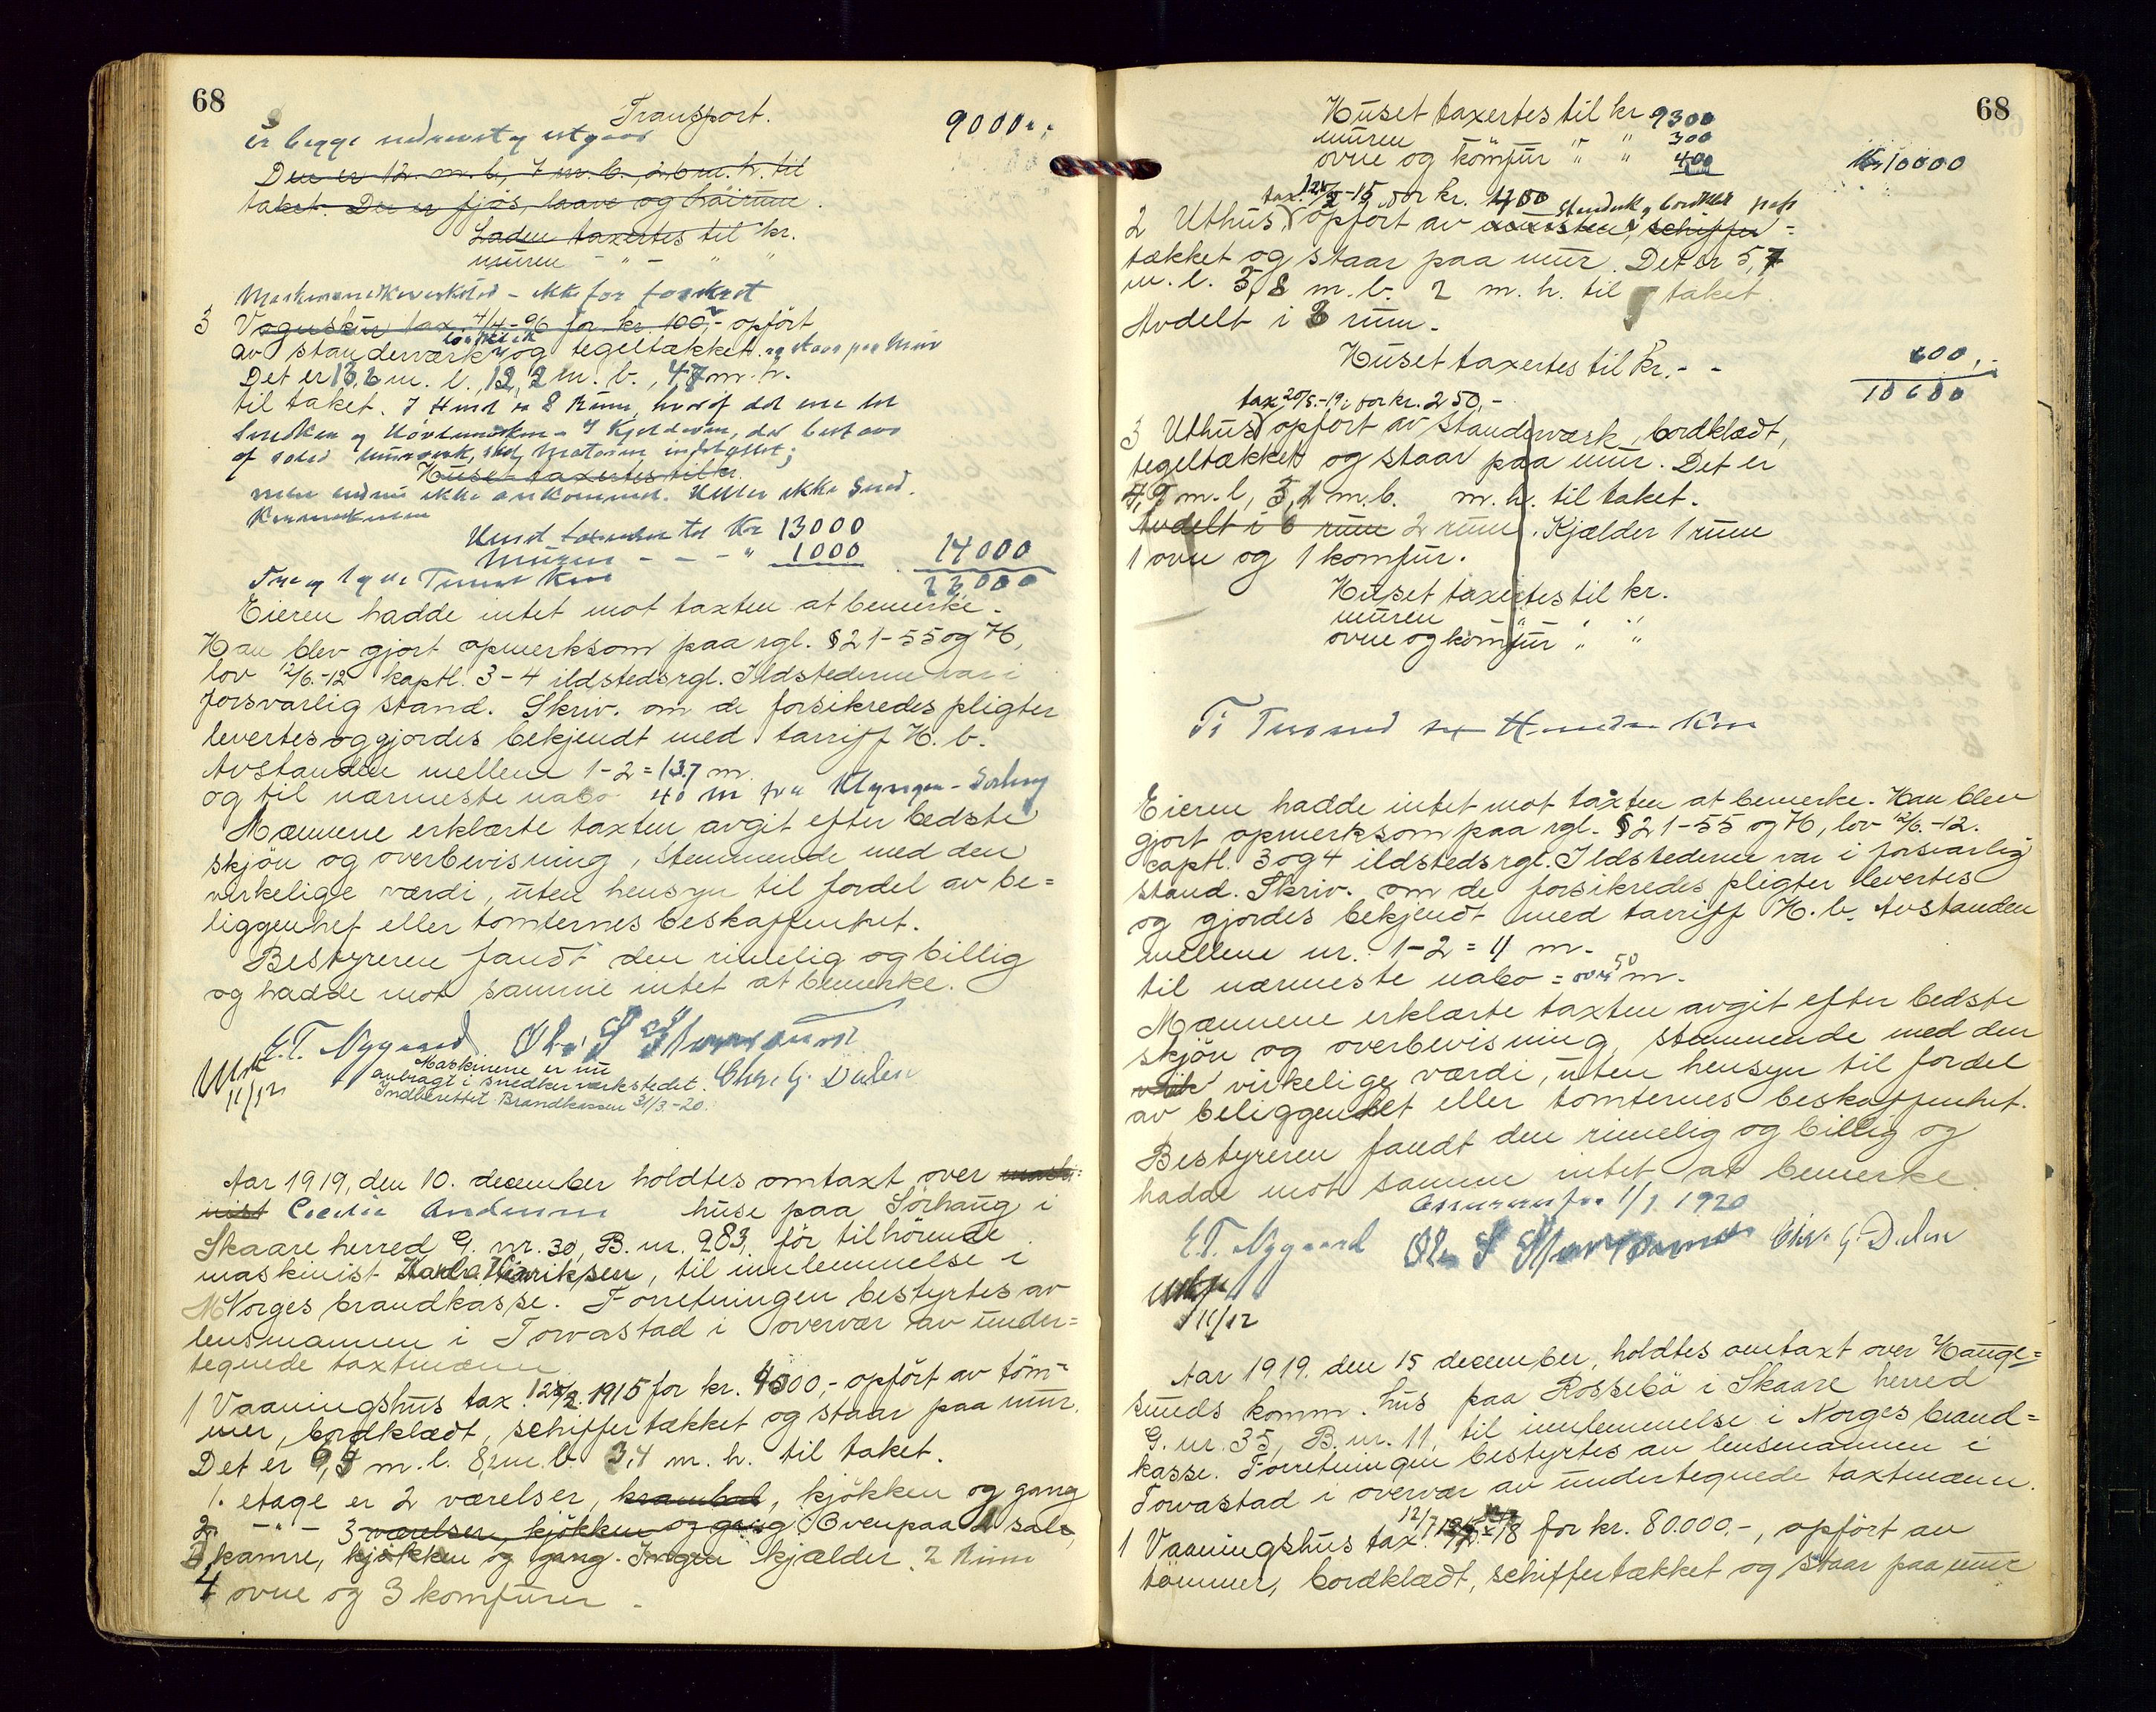 68
Transport. 9000,-
er begge nedrevet og utgaar
Den er 12 m. l., 7 m. b., 2,6 m. h. til
taket. Der er fjøs, laave og høirum.
Laden taxertes til kr.
muren - " - " "
Maskinsnedkerverksted - ikke for forsikret
3 Vognskur tax. 4/4-96 for kr. 100,- opført
av standerværk bordklædt og tegeltækket og staar paa mur
Det er 13,6 m. l., 12,2 m. b., 4,7 m. h.
til taket. I Huset er 8 Rum, hvoraf det ene til
Snedken og Høvlmaskin - I Kjelderen, der bestaar
af solid murverk, skal Motoren indstalles;
Huset taxertes til kr.
men endnu ikke ankommet. Heller ikke Sned.
kermaskinen
Huset taxertes til Kr 13000
Muren - - - " 1000 14000
Tre og tyve Tusen Kro 23000
Eieren hadde intet mot taxten at bemerke.
Han blev gjort opmerksom paa rgl. § 21-55 og H,
lov 12/6.-12 kaptl. 3-4 ildstedsrgl. Ildstederne var i
forsvarlig stand. Skriv. om de forsikredes pligter
levertes og gjordes bekjendt med tarriff H. b.
Avstanden mellem 1-2 = 13,7 m.
og til nærmeste nabo 40 m fra
Mænnene erklærte taxten avgit efter bedste
skjøn og overbevisning, stemmende med den
virkelige værdi, uten hensyn til fordel av be=
liggenhet eller tomternes beskaffenhet.
Bestyreren fandt den rimelig og billig
og hadde mot samme intet at bemerke.
E. T. Nygaard Chr. G. Dalen
Maskinene er nu
anbragt i snedkerverkstedet.
Indberettet Brandkassen 31/3-20.
11/12
Aar 1919, den 10. december holdtes omtaxt over maski=
nist Cecilie Andersen huse paa Sørhaug i
Skaare herred G. nr. 30, B. nr. 283, før tilhørende
maskinist Henriksen, til innlemmelse i
Norges brandkasse. Forretningen bestyrtes av
lensmannen i Torvastad i overvær av under=
tegnede taxtmænn.
1 Vaaningshus tax. 12/2 1915 for kr. 4500,- opført av tøm=
mer, bordklædt, schiffertækket og staar paa mur.
Det er 6,5 m. l. 8, m. b. 3,4 m. h. til taket.
1. etage er 2 værelser, krambod, kjøkken og gang
2. -"- 3 værelser, kjøkken og gang. Ovenpaa 2 sale,
2 kamre, kjøkken og gang. Ingen kjælder. 2 Rum
4 ovne og 3 komfurer.
68
Huset taxertes til kr 9300
muren " " 300
ovne og komfur " " 400 Kr 10000
tax. 12/2-15 for kr. 400
2 Uthus, opført av mursten, schiffer= Standerk og bordkledt
tækket og staar paa mur. Det er 5,7
m. l. 3,8 m. b. 2 m. h. til taket.
Avdelt i 3 rum.
Huset taxertes til kr. - - 600,-
10600
tax 20/5.-19 for kr. 250,-
3 Uthus, opført av standerværk, bordklædt,
tegeltækket og staar paa mur. Det er
4,9 m. l., 3,1 m. b. m. h. til taket.
Avdelt i 6 rum 2 rum. Kjælder 1 rum
1 ovn og 1 komfur.
Huset taxertes til kr.
muren " "
ovne og komfur " "
Ti Tusend sex Hundre Kro
Eieren hadde intet mot taxten at bemerke. Han blev
gjort opmerksom paa rgl. § 21-55 og H, lov 12/6.-12.
captl. 3 og 4 ildstedsrgl. Ildstederne var i forsvarlig
stand. Skriv. om de forsikredes pligter levertes
og gjordes bekjendt med tarriff H. b. Avstanden
mellem nr. 1-2 = 11 m.
til nærmeste nabo = over 50 m.
Mænnene erklærte taxten avgit efter bedste
skjøn og overbevisning, stemmende med den
virkelige værdi, uten hensyn til fordel
av beliggenhet eller tomternes beskaffenhet.
Bestyreren fandt den rimelig og billig og
hadde mot samme intet at bemerke.
Assuranse fra 1/1 1920
E. T. Nygaard Chr. G. Dalen
11/12
Aar 1919, den 15 december, holdtes omtaxt over Hauge=
sunds komm. hus paa Rossebø i Skaare herred
G. nr. 35, B. nr. 11, til innlemmelse i Norges brand=
kasse. Forretningen bestyrtes av lensmannen i
Torvastad i overvær av undertegnede taxtmænn.
1 Vaaningshus tax. 12/7 18 for kr. 80.000,-, opført av
tømmer, bordklædt, schiffertækket og staar paa mur